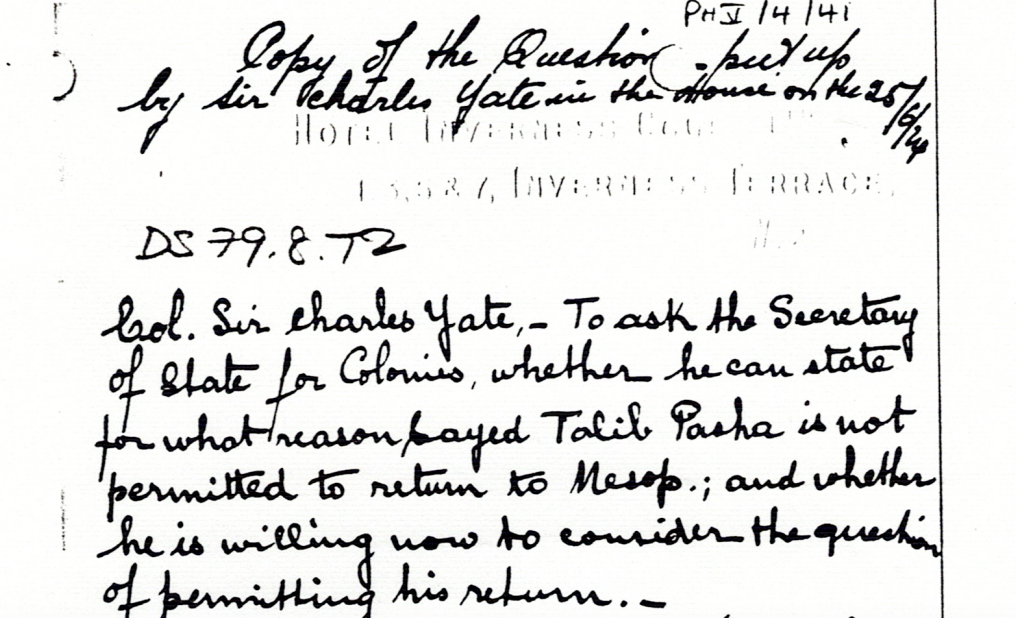 PH V/4/41
Copy of the Question - put up
by Sir Charles Yate in the House on the 25/6/24
HOTEL INVERNESS
1, 3, 5 & 7, INVERNESS TERRACE,
DS 79.8.T2
Col. Sir Charles Yate,- To ask the Secretary
of State for Colonies, whether he can state
for what reason Sayed Talib Pasha is not
permitted to return to Mesop.; and whether
he is willing now to consider the question
of permitting his return.-